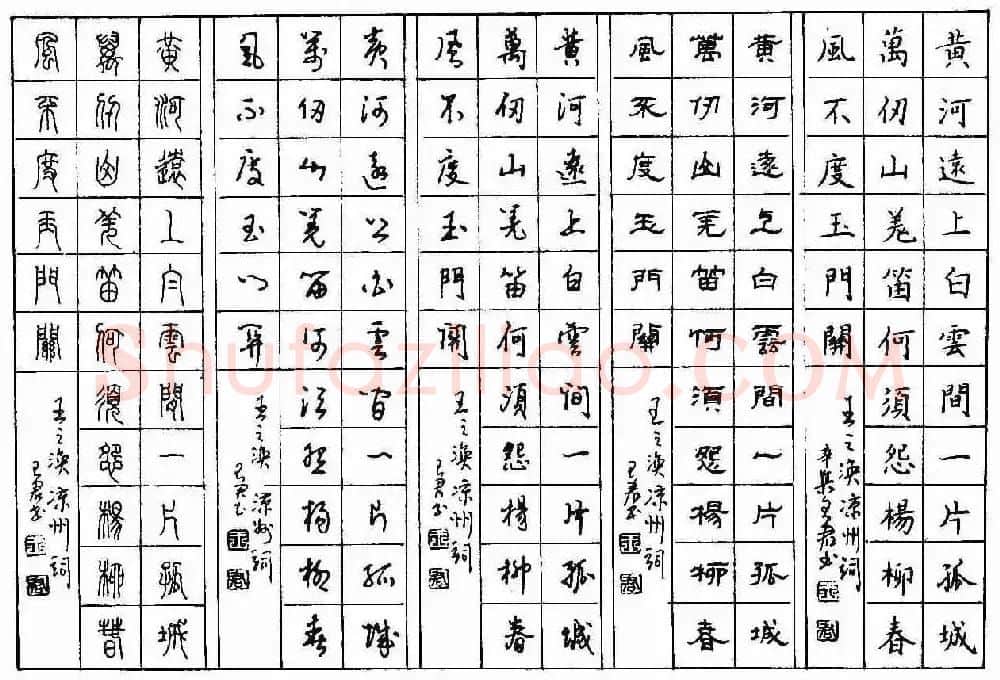 黃河遠上白雲間一片孤城
萬仞山羌笛何須怨楊柳春
風不度玉門關
王之渙凉州詞
黃河遠上白雲間一片孤城
萬仞山羌笛何須怨楊柳春
風不度玉門關
王之渙凉州詞
黃河遠上白雲間一片孤城
萬仞山羌笛何須怨楊柳春
風不度玉門關
王之渙凉州詞
黃河遠上白雲間一片孤城
萬仞山羌笛何須怨楊柳春
風不度玉門關
王之渙凉州詞
黃河遠上白雲間一片孤城
萬仞山羌笛何須怨楊柳春
風不度玉門關
王之渙凉州詞
Shufaziliao.COM